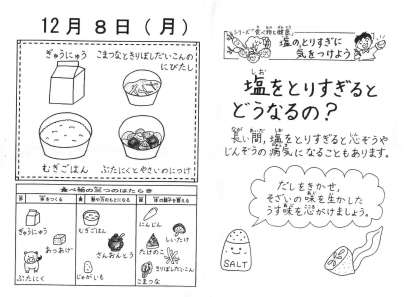 12月8日(月)
ぎゅうにゅう
こまつなときりぼしだいこんの
にびたし
むぎごはん
ぶたにくとやさいのにつけ
食べ物の三つのはたらき
体をつくる
ぎゅうにゅう
あつあげ
ぶたにく
むぎごはん
さんおんとう
じゃがいも
にんじん
しいたけ
たけのこ
きりぼしだいこん
こまつな
シリーズ“食べ物と健康”
塩のとりすぎに
気をつけよう
塩をとりすぎると
どうなるの?
長い間,塩をとりすぎると心ぞうや
じんぞうの病気になることもあります。
だしをきかせ,
そざいの味を生かした
うす味を心がけましょう。
SALT